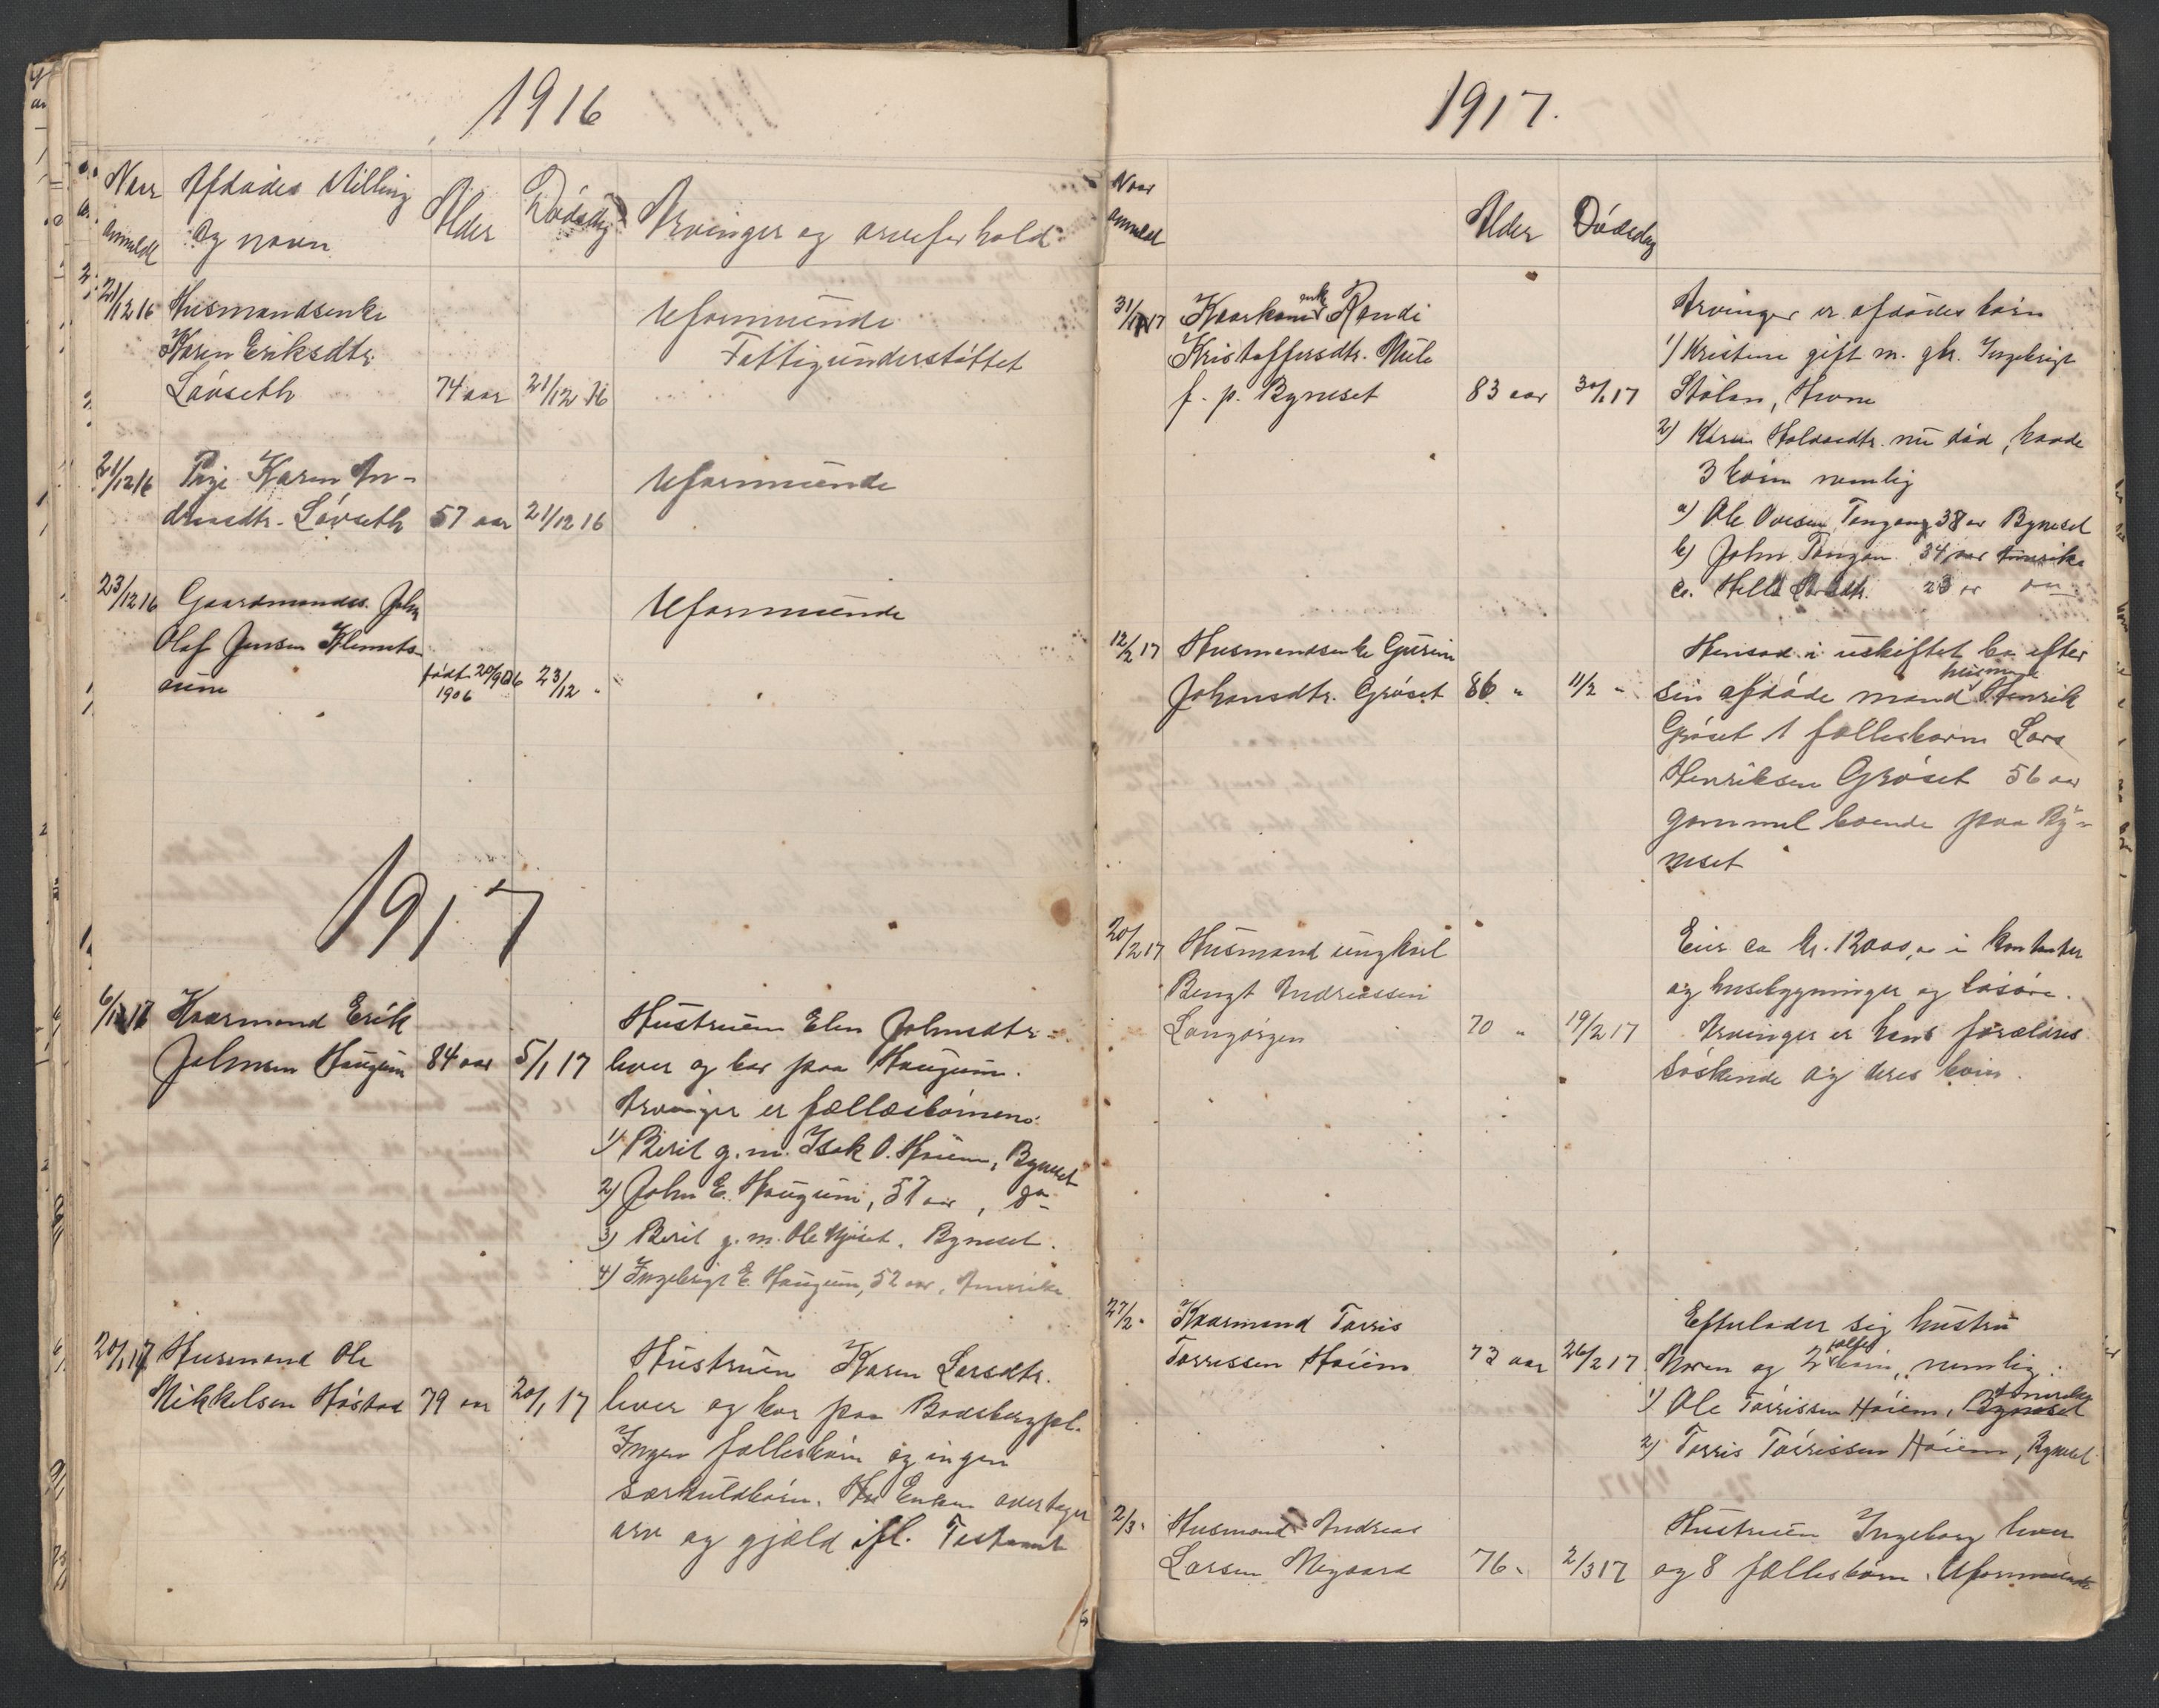 1916
Naar anmeldt
Afdødes stilling og navn
Alder
Dødsdag
Arvinger og arveforhold
21/12 16 Husmandsenke
Uformuende
Karen Eriksdtr.
Fattigunderstøttet
Løvseth 74 aar 21/12 16
21/12 16 Pige Karen An-
Uformuende
dreasdtr. Løvseth 57 aar 21/12 16
23/12 16 Gaardmands. John
Uformuende
Olaf Jensen Klemets-
aune født 20/9 06 1906 23/12 "
1917
6/1 17 Kaarmand Erik
Hustruen Elen Johnsdtr.
Johnsen Haugum 84 aar 5/1 17 lever og bor paa Haugum.
Arvinger er fællesbørnene:
1) Berit g. m. Isak O. Høiem, Byneset
2) John E. Haugum, 57 aar, do-
3) Berit g. m. Ole Mjøset, Byneset.
4) Ingebrigt E. Haugum, 52 aar, Amerika
20/1 17 Husmand Ole
Hustruen Karen Larsdtr.
Mikkelsen Høstad 79 aar 20/1 17 lever og bor paa Bodsbergpl.
Ingen fællesbørn og ingen
særkuldbørn. Enken overtager
arv og gjæld ifl. Testament
1917.
Naar anmeldt
Alder
Dødsdag
31/1 17 Kaarkone enke Randi
Arvinger er afdødes børn
Kristoffersdtr. Mule
1) Kristine gift m. gbr. Ingebrigt
f. p. Byneset 83 aar 30/1 17 Stølan,
2) Karen nu død, havde
3 børn nemlig
a) Ole Ovesen Tangang 38 aar Byneset
b) John Tangan 34 aar Amerika
c. 23 aar
12/2 17 Husmandsenke Gurine
Hensad i uskiftet bo efter
Johansdtr. Grøset 86 " 11/2 " sin afdøde mand husmand Henrik
Grøset 1 fællesbarn Lars
Henriksen Grøset 56 aar
gammel boende paa By-
neset
20/2 17 Husmand ungkarl
Eier ca kr. 12000,00 i kontanter
Bengt Andreassen
og husebygninger og løsøre.
Langørgen 70 " 19/2 17 Arvinger er hans forældres
søskende og deres børn.
27/2 " Kaarmand Tørris
Efterlader sig hustru
Tørrissen Høiem 73 aar 26/2 17 Maren og 2 børn, nemlig:
1) Ole Tørrissen Høiem, Byneset Amerika
2) Tørris Tørrissen Høiem, Byneset
2/3 " Husmand Andreas
Hustruen Ingeborg lever
Larsen Megaard 76 " 2/3 17 og 8 fællesbørn. Uformuende